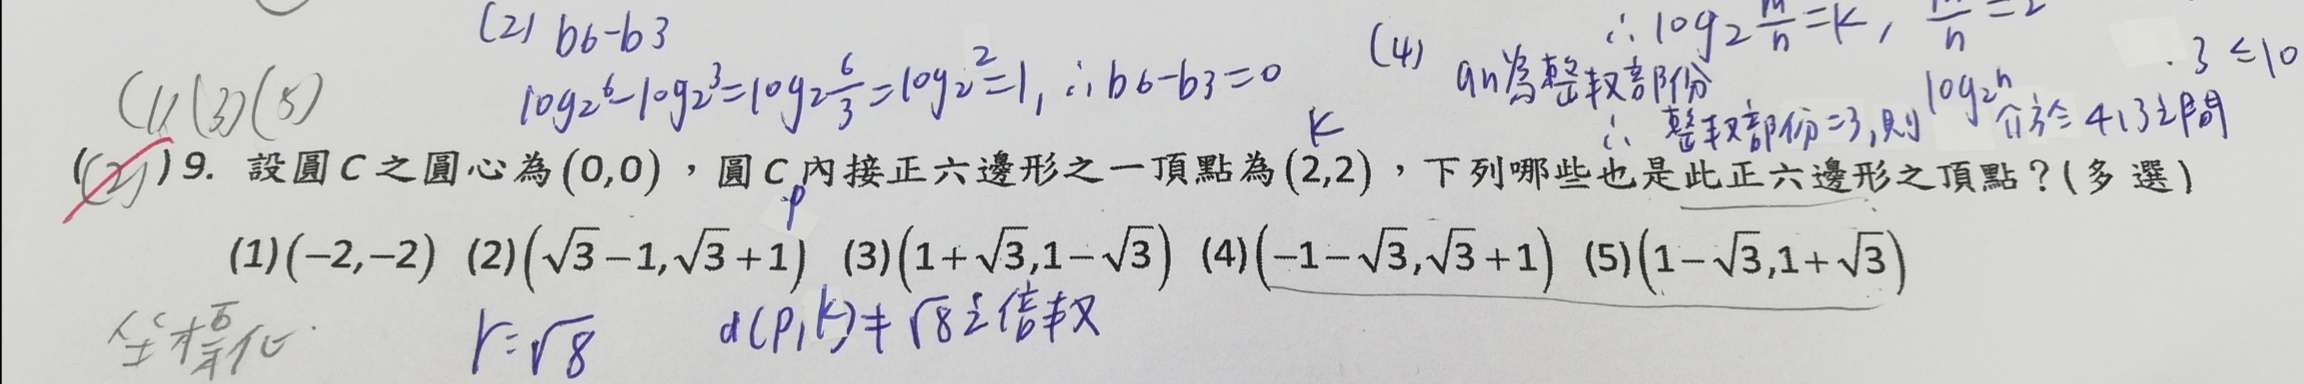 (2) b6-b3
log₂6-log₂3=log₂6/3=log₂2=1, ∴b6-b3=0
(4) an為整數部份
∴log₂m/n=K, m/n=2
∴整數部份=3,則log₂n介於4、3之間
3≤10
(1)(3)(5)
K
((2))9. 設圓C之圓心為(0,0),圓C內接正六邊形之一頂點為(2,2),下列哪些也是此正六邊形之頂點?(多選)
P
(1)(-2,-2) (2)(√3-1,√3+1) (3)(1+√3,1-√3) (4)(-1-√3,√3+1) (5)(1-√3,1+√3)
坐標化
r=√8
d(P,K)≠√8之倍數